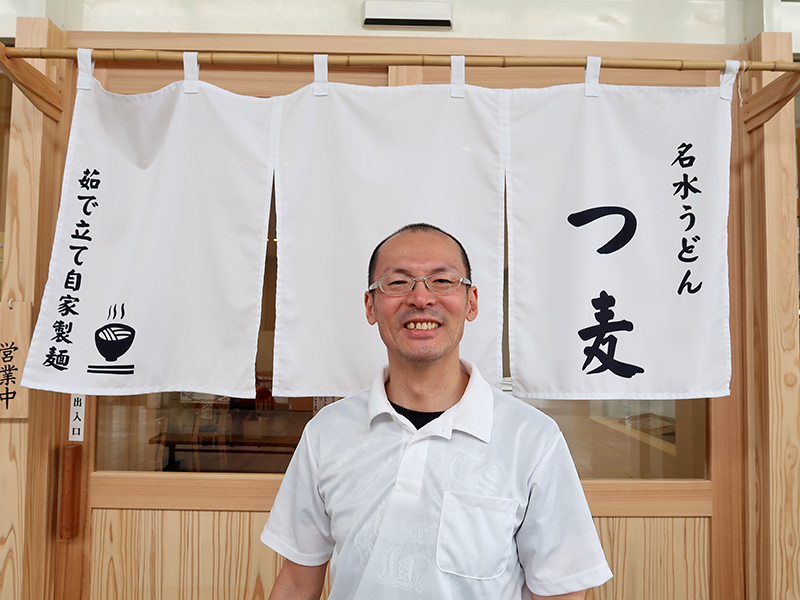 名水うどん
つ麦
茹で立て自家製麺
営業中
出入口